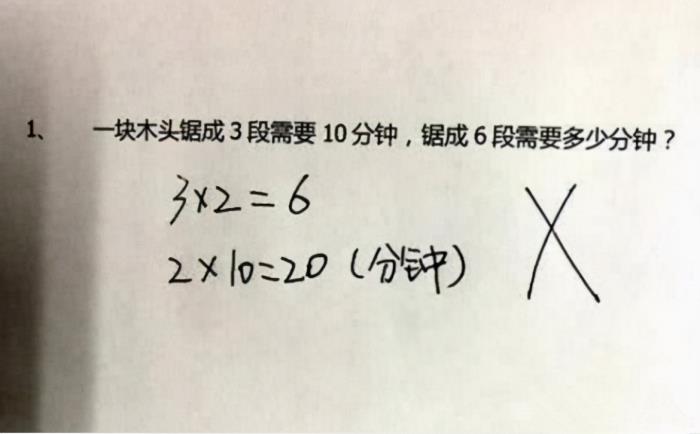 1、 一块木头锯成3段需要10分钟，锯成6段需要多少分钟？
3×2=6
2×10=20（分钟）